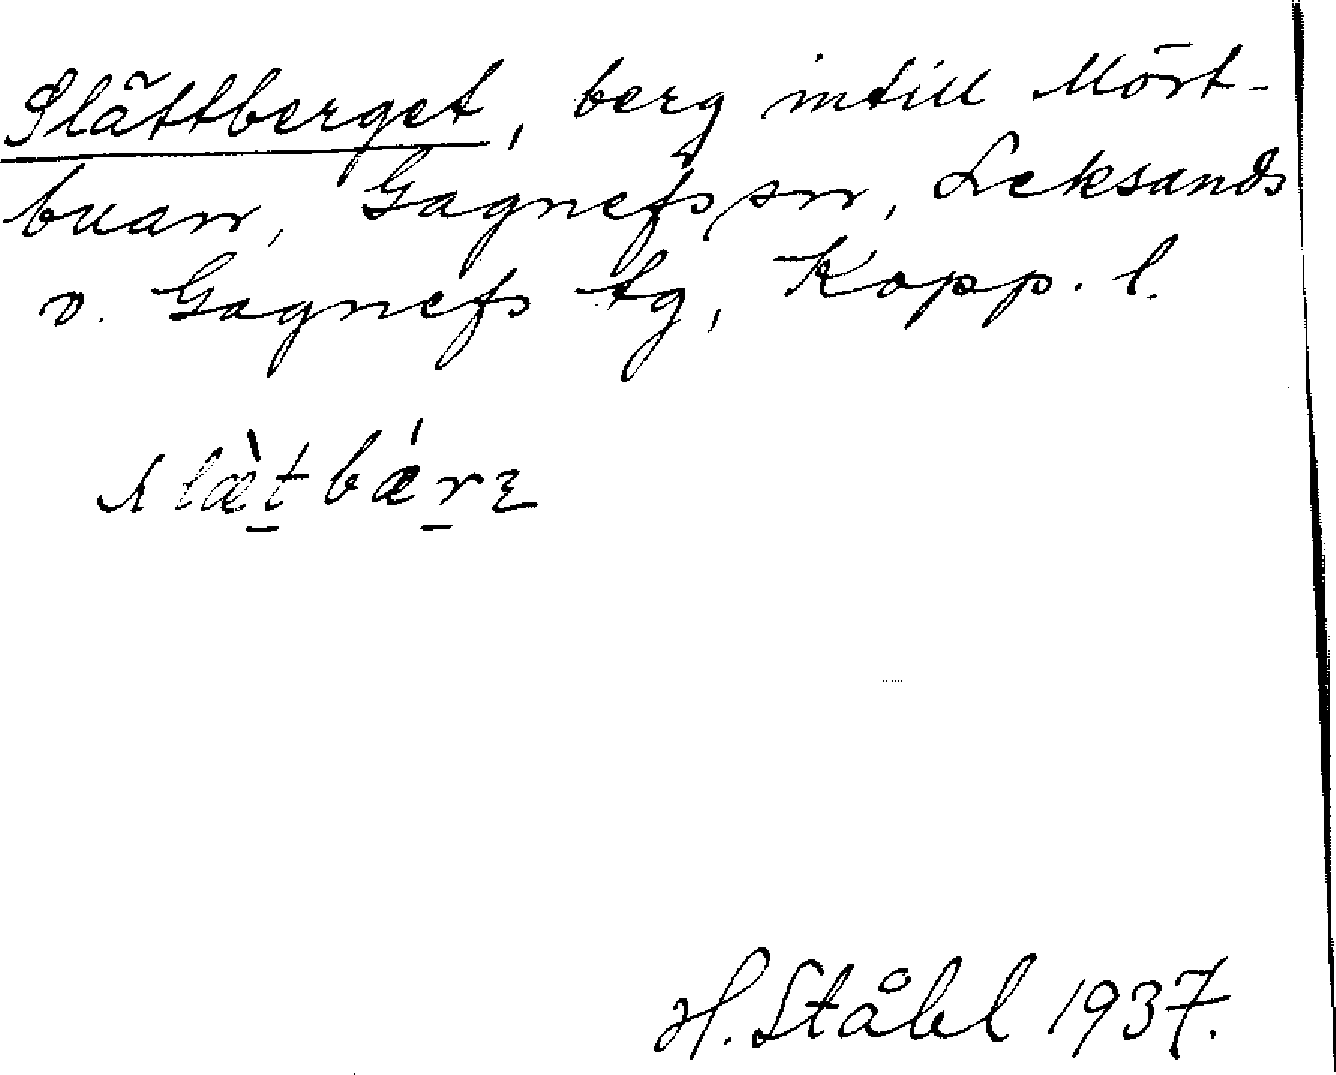 Slättberget, berg intill Mört-
buan, Gagnefs sn, Leksands
o. Gagnefs tg, Kopp. l.
slæ̀t bǽrɛ
H. Ståhl 1937.